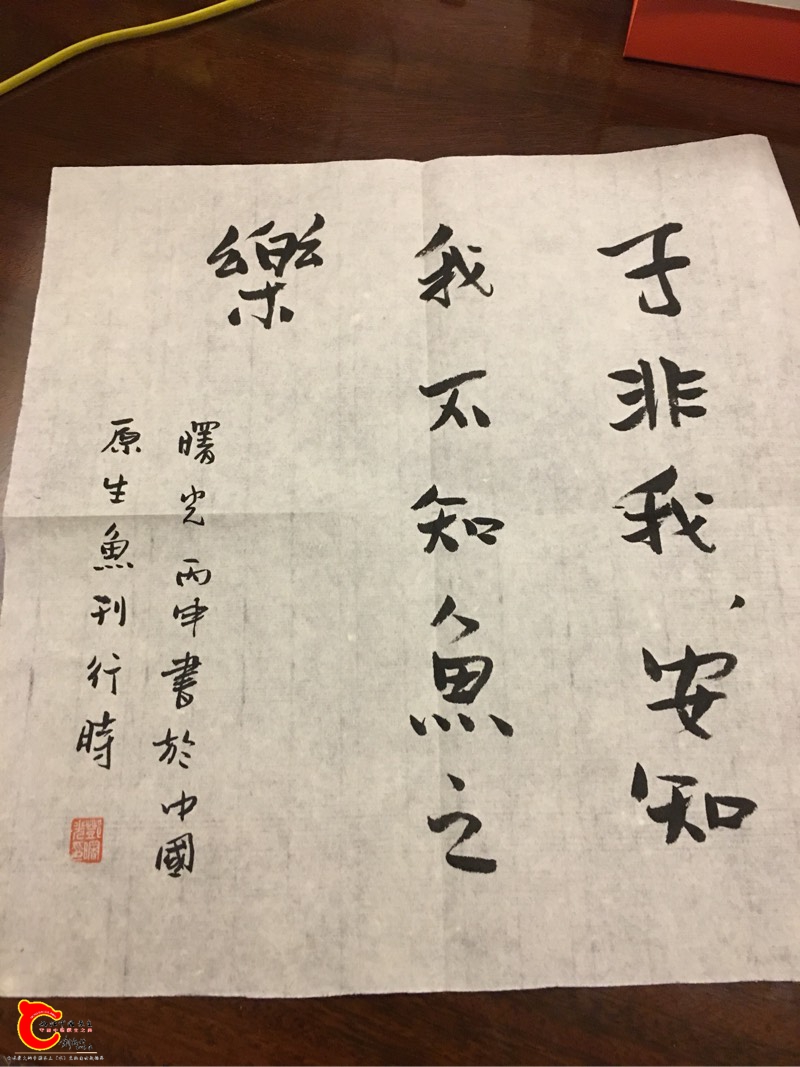 子非我、安知
我不知魚之
樂
曙光丙申書於中國
原生魚刊行時